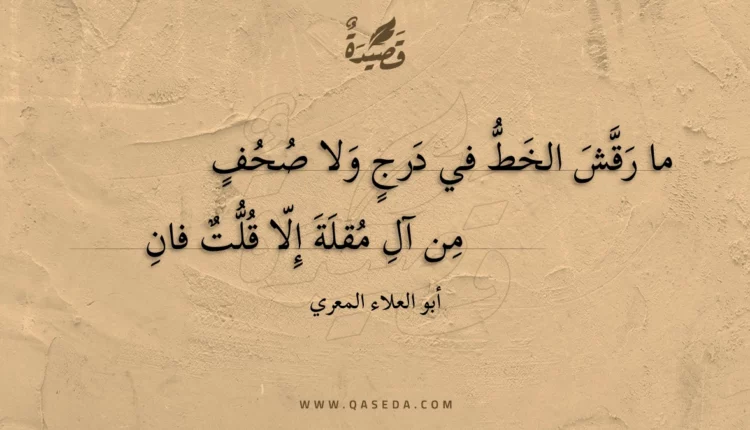 قَصِيدَةٌ
ما رَقَّشَ الخَطُّ في دَرجٍ وَلا صُحُفٍ
مِن آلِ مُقلَةَ إِلّا قُلُّتٌ فانِ
أبو العلاء المعري
WWW.QASEDA.COM